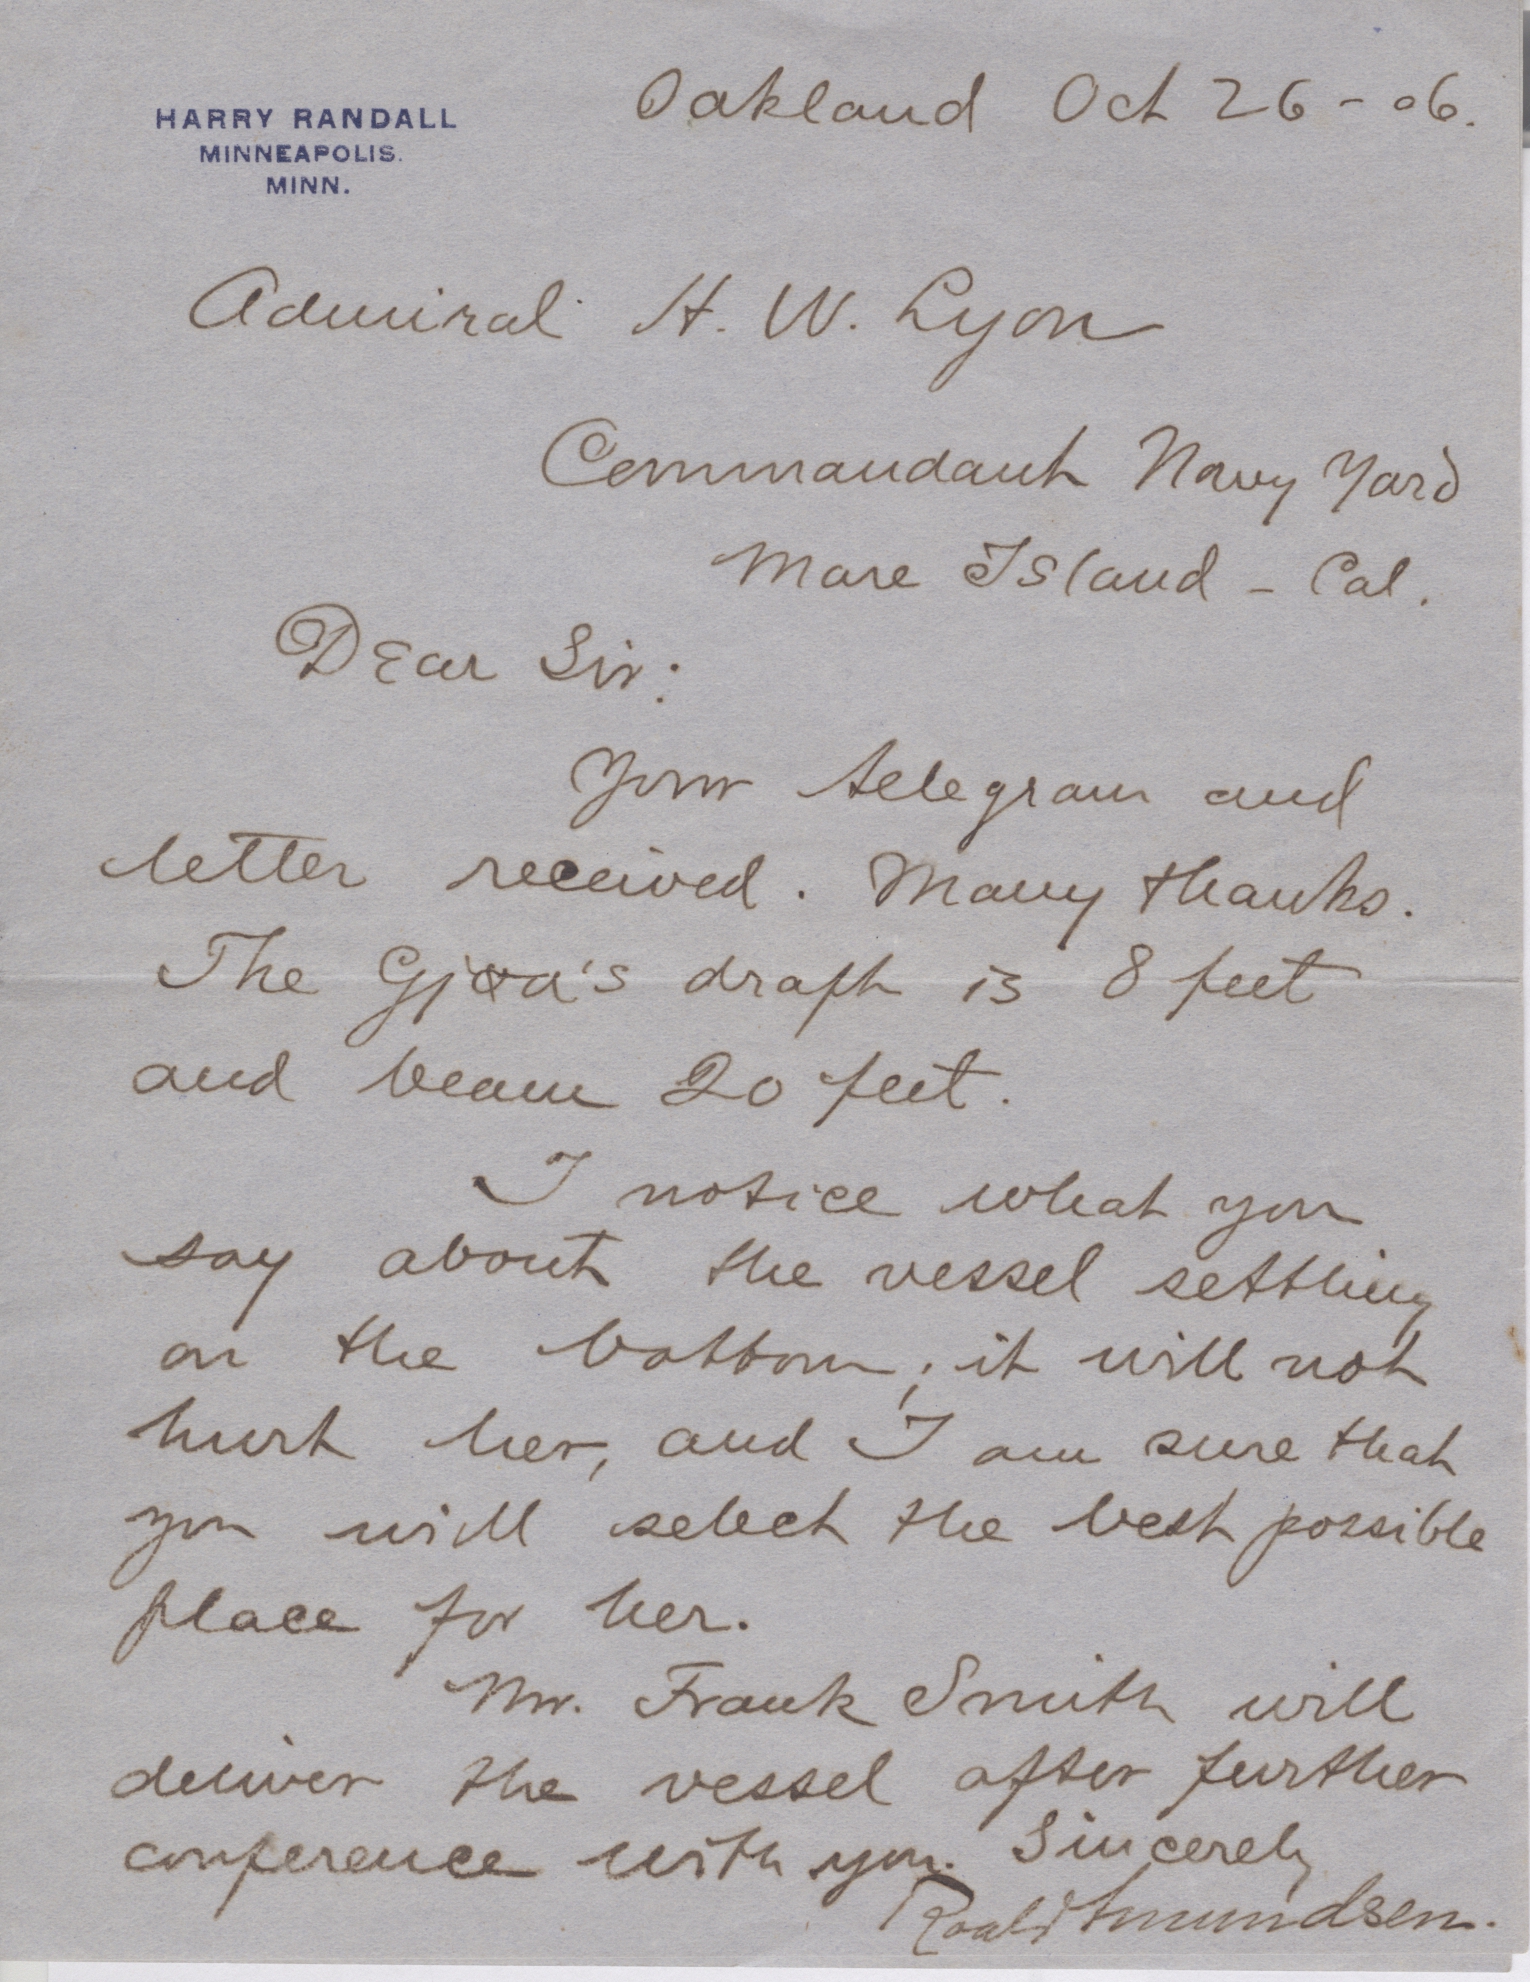 HARRY RANDALL
MINNEAPOLIS.
MINN.
Oakland Oct 26 - 06.
Admiral H. W. Lyon
Commandant Navy Yard
Mare Island - Cal.
Dear Sir:
Your telegram and
letter received. Many thanks.
The Gjøa's draft is 8 feet
and beam 20 feet.
I notice what you
say about the vessel settling
on the bottom; it will not
hurt her, and I am sure that
you will select the best possible
place for her.
Mr. Frank Smith will
deliver the vessel after further
conference with you. Sincerely
Roald Amundsen.